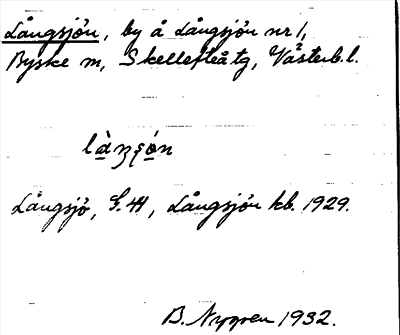 Långsjön, by å Långsjön nr 1,
Byske sn, Skellefteå tg, Västerb. l.
Långsjö, G.44, Långsjön kb. 1929.
B. Nygren 1932.